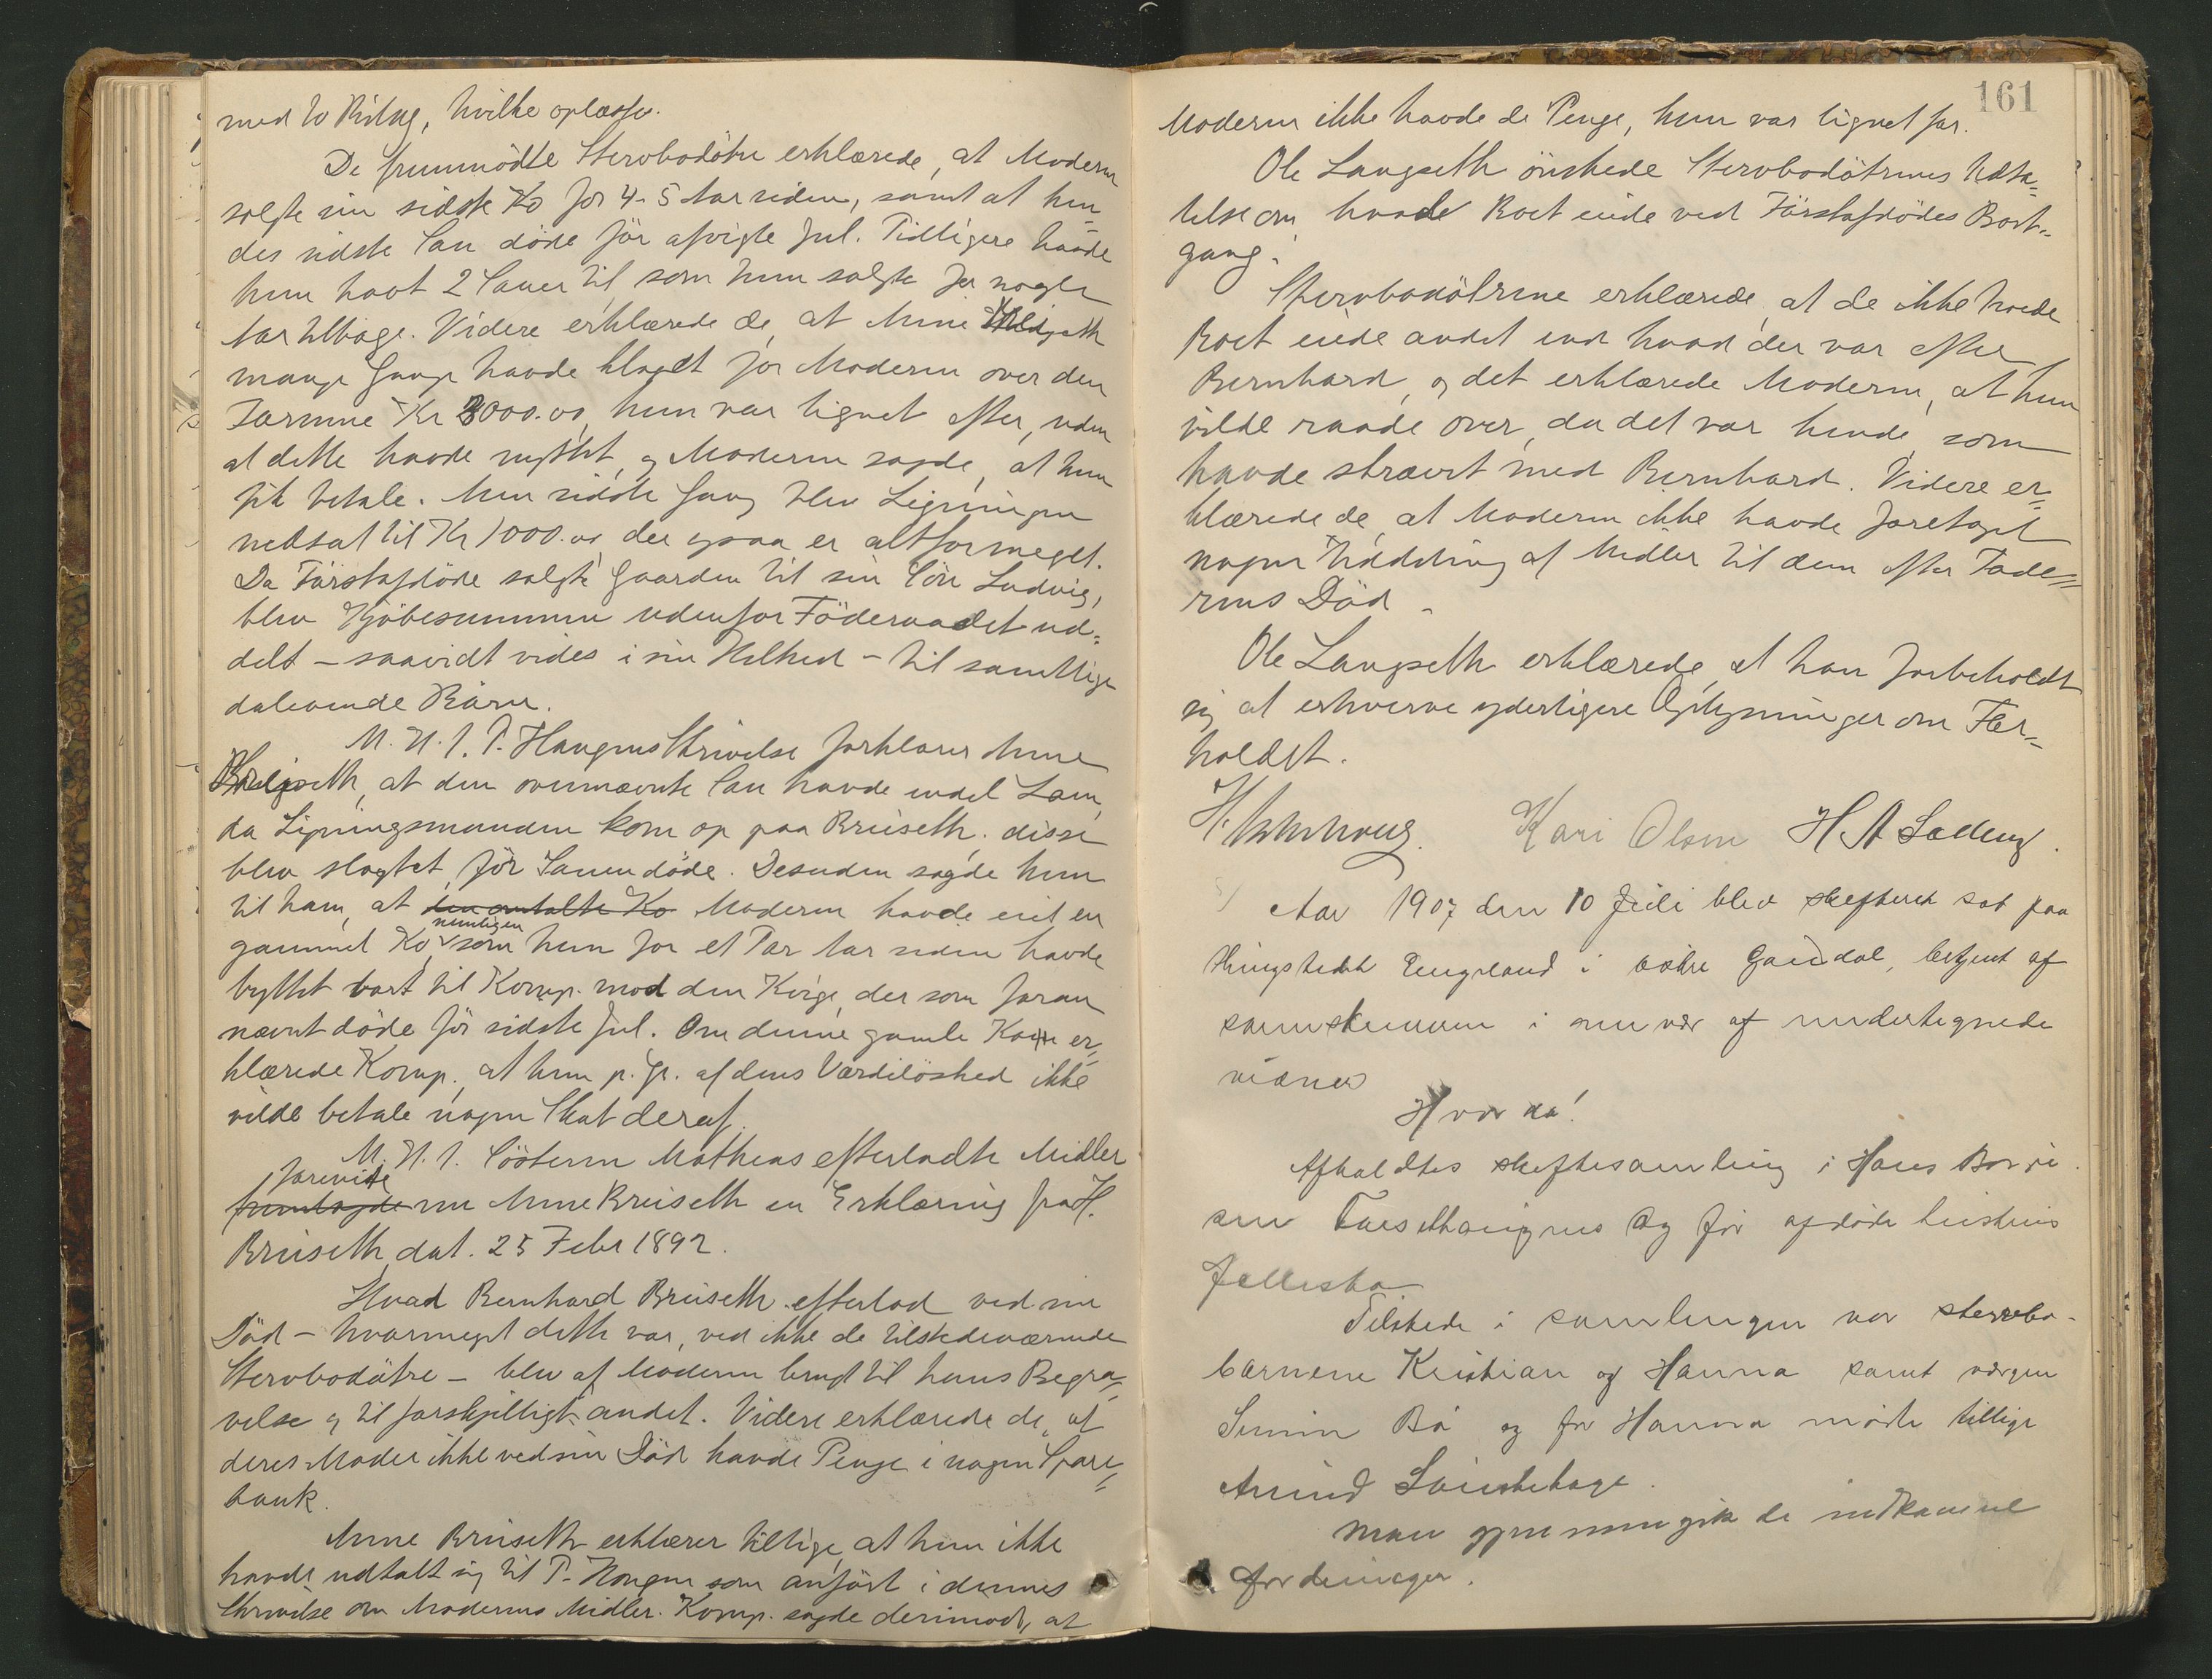 med to Bilag, hvilke oplæstes.
De fremmødte Stervbodøtre erklærede, at Moderen
solgte sin sidste Ko for 4-5 Aar siden, samt at hen-
des sidste Sau døde før afvigte Jul. Tidligere havde
hun havt 2 Sauer til, som hun solgte for nogle
Aar tilbage. Videre erklærede de, at Anne
mange Gange havde klaget for Moderen over den
Formue Kr 3000.00, hun var lignet efter, uden
at dette havde nyttet, og Moderen sagde, at hun
fik betale. Men sidste Gang blev Ligningen
nedsat til Kr 1000.00, der ogsaa er altformeget.
Da Førstafdøde solgte Gaarden til sin Søn Ludvig,
blev Kjøbesummen udenfor Føderaadet ud-
delt - saavidt vides i sin Helhed - til samtlige
dalevende Børn.
M. H. t. P. Haugens Skrivelse forklarer Anne
at den overnævnte Sau havde endel Lam,
da Ligningsmanden kom op paa Brüseth; disse
blev slagtet, før Sauen døde. Desuden sagde hun
til ham, at den omtalte Ko Moderen havde eiet en
gammel Ko, nemligen som hun for et Par Aar siden havde
byttet bort til Komp. mod den Kvige, der som foran
nævnt døde før sidste Jul. Om denne gamle Ko er-
klærede Komp., at hun p. Gr. af dens Værdiløshed ikke
vilde betale nogen Skat deraf.
M. H. t. Søsteren Matheas efterladte Midler
foreviste
fremlagde nu Anne Brüseth en Erklæring fra H.
Brüseth, dat. 25 Febr 1892.
Hvad Bernhard Brüseth efterlod ved sin
Død - hvormeget dette var, ved ikke de tilstedeværende
Stervbodøtre - blev af Moderen brugt til hans Begra-
velse og til forskjelligt andet. Videre erklærede de, at
deres Moder ikke ved sin Død havde Penge i nogen Spare-
bank.
Anne Brüseth erklærer tillige, at hun ikke
havde udtalt sig til P. Haugen som anført i dennes
Skrivelse om Moderens Midler. Komp. sagde derimod, at
161
Moderen ikke havde de Penge, hun var lignet for.
Ole Langseth ønskede Stervbodøtrenes Udta-
telse om, hvad Boet eiede ved Førstafdødes Bort-
gang.
Stervbodøtrene erklærede, at de ikke havde
Boet eiede andet end hvad der var efter
Bernhard, og det erklærede Moderen, at hun
vilde raade over, da det var hende, som
havde strævet med Bernhard. Videre er-
klærede de, at Moderen ikke havde foretaget
nogen Uddeling af Midler til dem efter Fade-
rens Død.
Ole Langseth erklærede, at han forbeholdt
sig at erhverve yderligere Oplysninger om For-
holdet.
Kari Olsen H A Sælleng.
Aar 1907 den 10 Juli blev skifteret sat paa
thingstedet Engeland i østre Gausdal, betjent af
sorenskriveren i nærvær af undertegnede
vidner
Hvorda!
Afholdtes skiftesamling i Hans
sen og før afdøde hustrus
fællesbo
Tilstede i samlingen var stervbo-
børnene Kristian og Hanna samt værgen
Simen Bø og for Hanna mødte tillige
Amund
man gjennemgik de indkomne
fordringer.